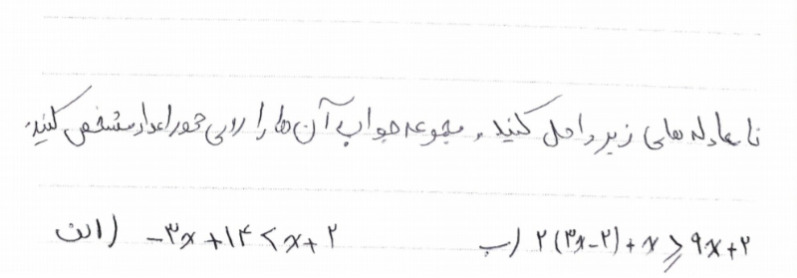 نا معادله های زیر را حل کنید و مجموعه جواب آن ها را روی محور اعداد مشخص کنید.
الف) -۳x+۱۴<x+۲ ب) ۲(۳x-۲)+x⩾۹x+۲